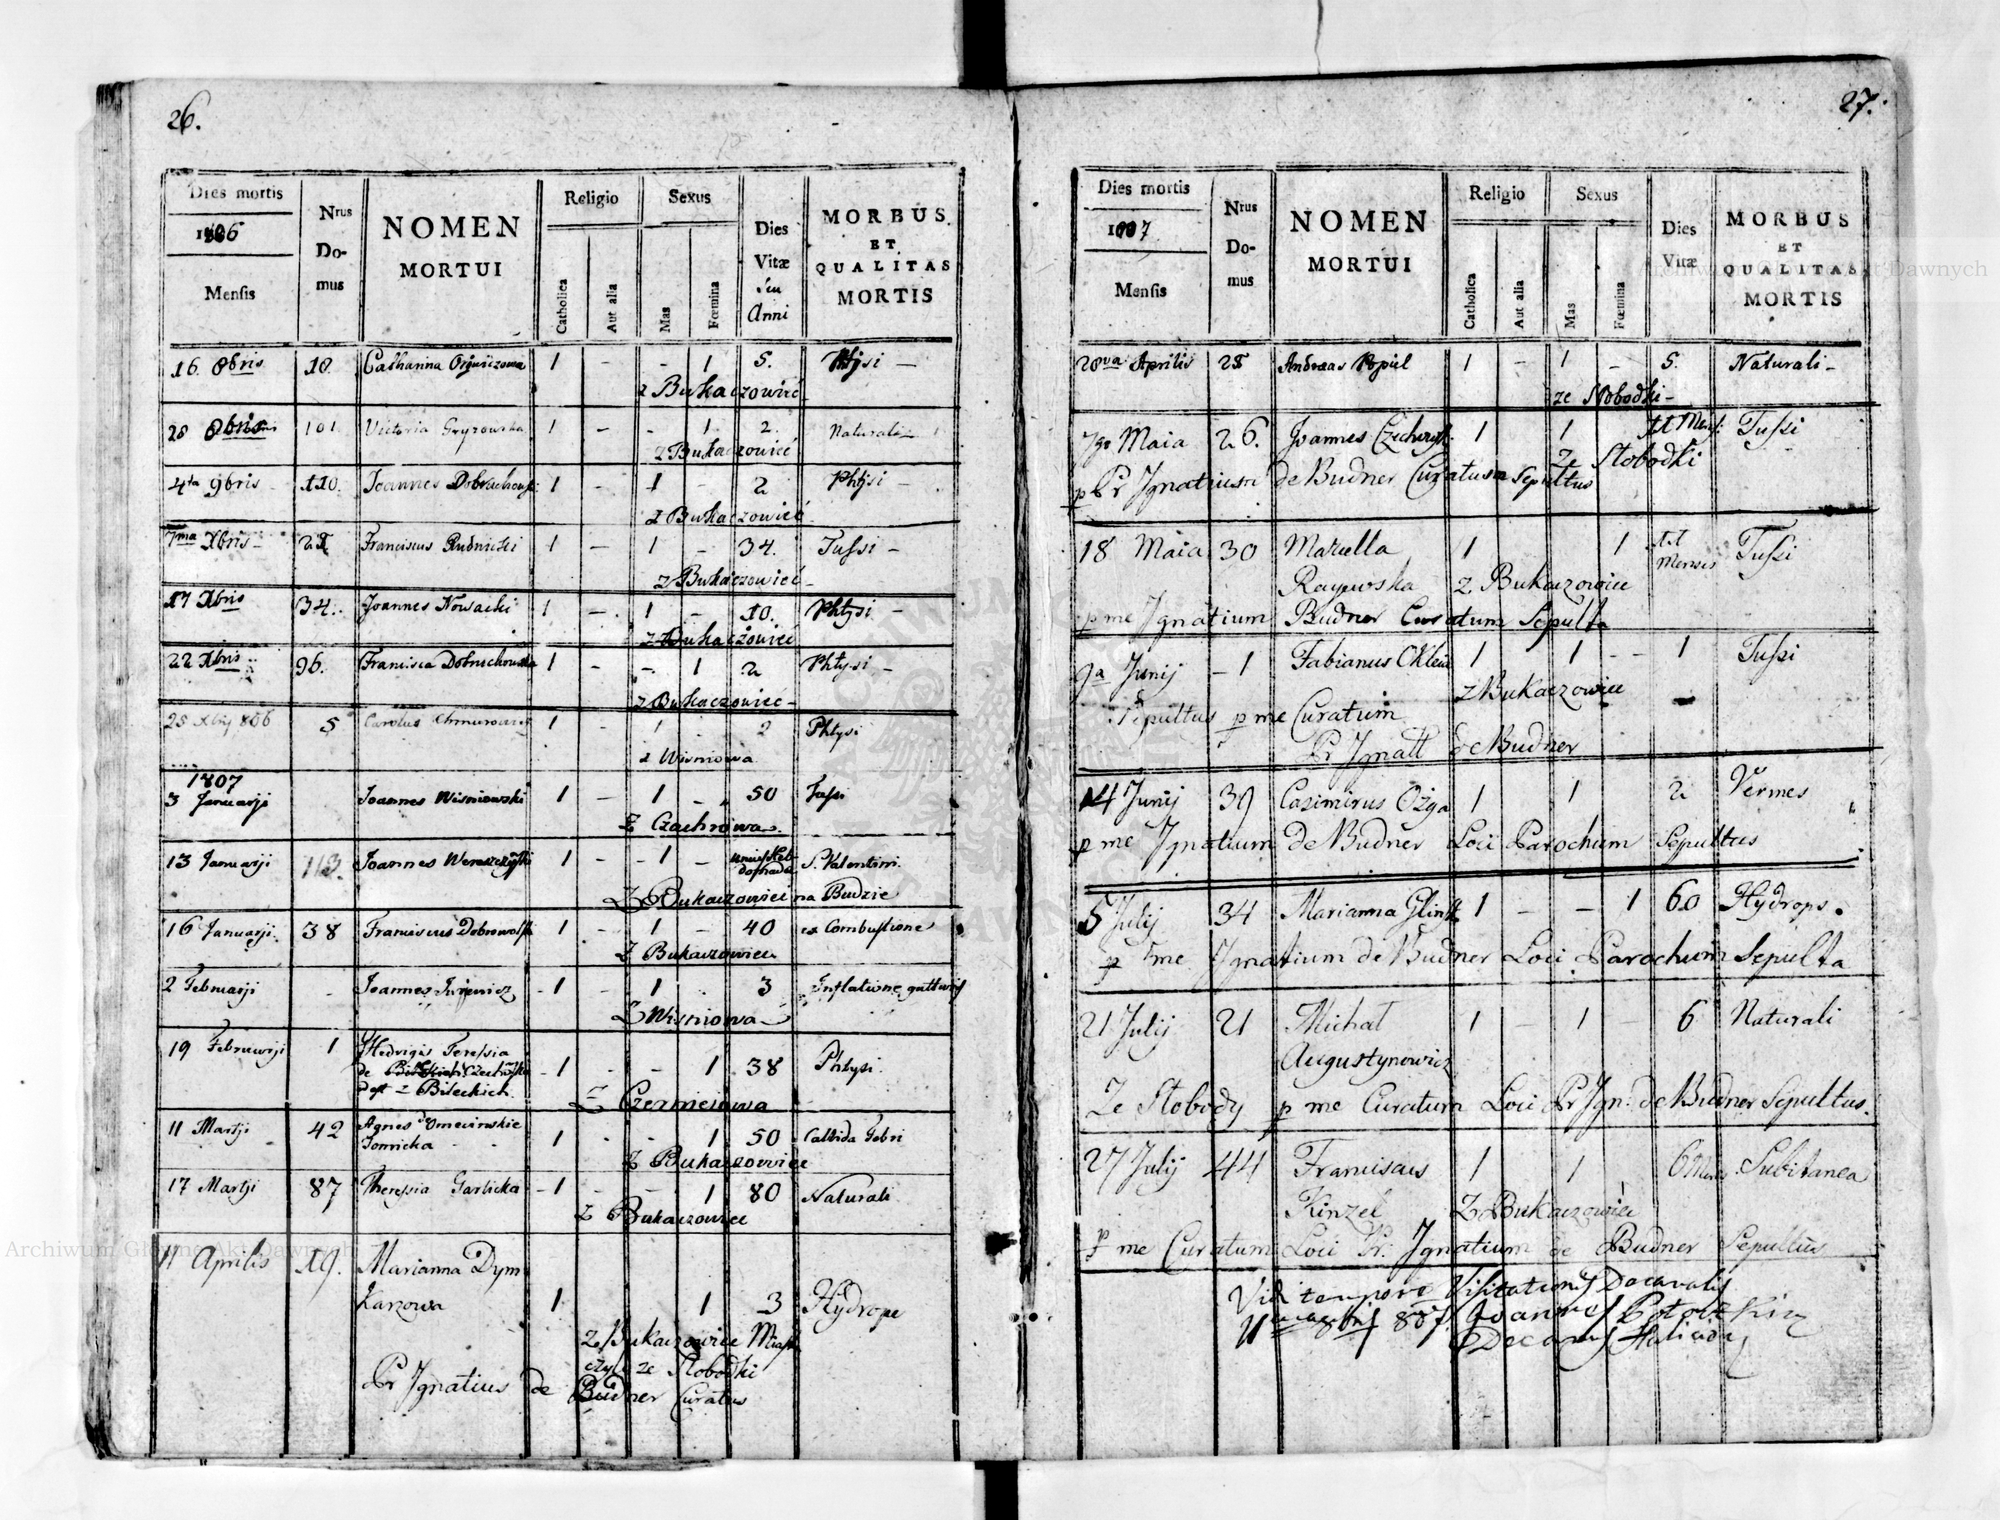 26.
Dies mortis
1806
Mensis
Nrus Do-mus
NOMEN
MORTUI
Religio
Catholica
Aut alia
Sexus
Mas
Fœmina
Dies
Vitæ
seu
Anni
MORBUS
ET
QUALITAS
MORTIS
16 8bris 10 Catharina 1 - - 1 5. Phtysi -
z Bukaczowiéc
28 8bris 101 Victoria Gryzowska 1 - - 1 2. Naturali -
z Bukaczowiéc
4ta 9bris 110. Joannes 1 - 1 2 Phtysi -
z Bukaczowiéc
7ma Xbris - Franciscus Rudnicki 1 - 1 - 34. Tussi -
z Bukaczowiéc -
17 Xbris 34. Joannes Nowacki 1 - 1 - 10. Phtysi -
z Bukaczowiéc
22 Xbris 96. Francisca 1 - - 1 2 Phtysi -
z Bukaczowiéc -
25 Xbris 806 5 Carolus 1 - 1 2 Phtysi
z Wisniowa
1807
3 Januarji Joannes Wisniowski 1 - 1 - 50 Tussi
z Czachrowa
13 Januarji 113. Joannes Wereszczyński 1 - 1 - S. Valentini
z Bukaczowiec na Budzie
16 Januarji 38 Franciscus Dobrowolski 1 - 1 - 40 ex Combustione
z Bukaczowiec
2 Februarji - Joannes Jurjewicz 1 - 1 - 3 Inflatione gutturis
z Wisniowa
19 Februarji 1 Hedvigis Teressia
de Czechowska
z Bileckich 1 - - 1 38 Phtysi
z Czerniejowa
11 Martji 42 Agnes
Tomicka 1 - - 1 50 Callida Febri
z Bukaczowiec
17 Martji 87 Theressia Garlicka 1 - - 1 80 Naturali
z Bukaczowiec
11 Aprilis 19. Marianna Dym
Karzowa 1 1 3 Hydrope
z Bukaczowiec
czyli ze Slobodki
Pr Ignatius de Budner Curatus
27.
Dies mortis
1807
Mensis
Nrus Do-mus
NOMEN
MORTUI
Religio
Catholica
Aut alia
Sexus
Mas
Fœmina
Dies
Vitæ
MORBUS
ET
QUALITAS
MORTIS
28va Aprilis Andreas Popiel 1 - 1 - 5. Naturali -
ze Slobodki -
7go Maia 26. Joannes 1 1 11 Mens: Tussi
ze Slobodki
p Pr Ignatium de Budner Curatum Sepultus
18 Maia 30 Mariella 1 1 11 Mensis Tussi
Rayewska z Bukaczowiec
p me Ignatium Budner Curatum Sepulta
9a Junij - 1 Fabianus 1 1 - - 1 Tussi
z Bukaczowiec
Sepultus p me Curatum
Pr Ignatt de Budner
14 Junij 39 Casimirus Ożga 1 1 2 Vermes
p me Ignatium de Budner Loci Parochum Sepultus
5 Julij 34 Marianna 1 - - 1 60 Hydrops.
p me Ignatium de Budner Loci Parochum Sepulta
21 Julij 21 Michał 1 - 1 - 6 Naturali
Augustynowicz
Ze Slobody p me Curatum Loci Pr Ign: de Budner Sepultus.
27 Julij 44 Franciscus 1 1 6 Mens Subitanea
Kinzel z Bukaczowiec
p me Curatum Loci Pr: Ignatium de Budner Sepultus
Vidi tempore Visitationis Decanalis
807 Joannes
Decanus
Archiwum Główne Akt Dawnych
Archiwum Główne Akt Dawnych